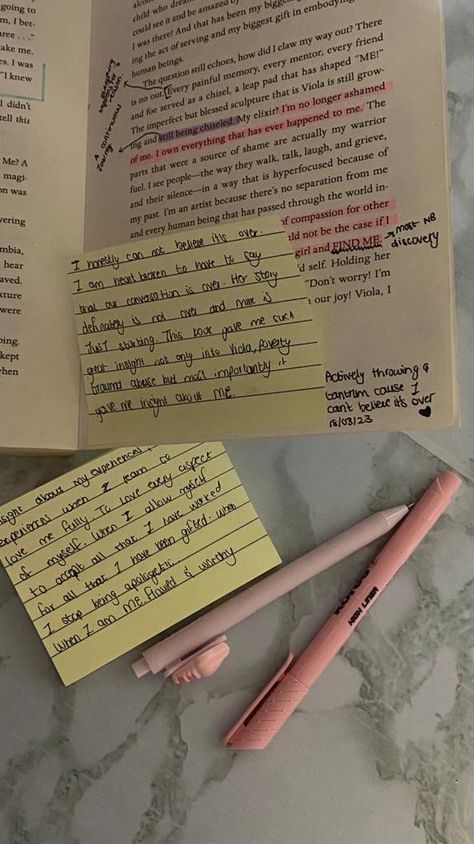 going to
m, I bet-
ree . . ."
ake me.
es. I was
"I knew
I didn't
tell this
Me? A
magi-
on was
vering
mbia,
hear
aved.
xture
were
ping.
kept
when
child who
could see it and be amazed by
I was there! And that has been my biggest
ing the act of serving and my biggest gift in embodying
human beings.
The question still echoes, how did I claw my way out? There
is no out. Every painful memory, every mentor, every friend
and foe served as a chisel, a leap pad that has shaped "ME!"
The imperfect but blessed sculpture that is Viola is still grow-
ing and still being chiseled. My elixir? I'm no longer ashamed
of me. I own everything that has ever happened to me. The
parts that were a source of shame are actually my warrior
fuel. I see people—the way they walk, talk, laugh, and grieve,
and their silence—in a way that is hyperfocused because of
my past. I'm an artist because there's no separation from me
and every human being that has passed through the world in-
of compassion for other
uld not be the case if I
girl and FIND ME.
d self. Holding her
"Don't worry! I'm
our joy! Viola, I
A continuous
journey
most NB
discovery
I honestly can not believe it's over.
I am heart broken to have to say
that our conversation is over. Her story
definately is not over and mine is
Just starting. This book gave me such
great insight not only into Viola, poverty
trauma abuse but most importantly it
gave me insight about ME.
Actively throwing a
tantrum cause I
can't believe it's over
18/03/23
insight about my experiences
experiences when I learn to
love me fully. To love every aspect
of myself. When I allow myself
to accept all that I have worked
for all that I have been gifted. When
I stop being apologetic.
When I am ME. Flawed & worthy
HIGH LINER